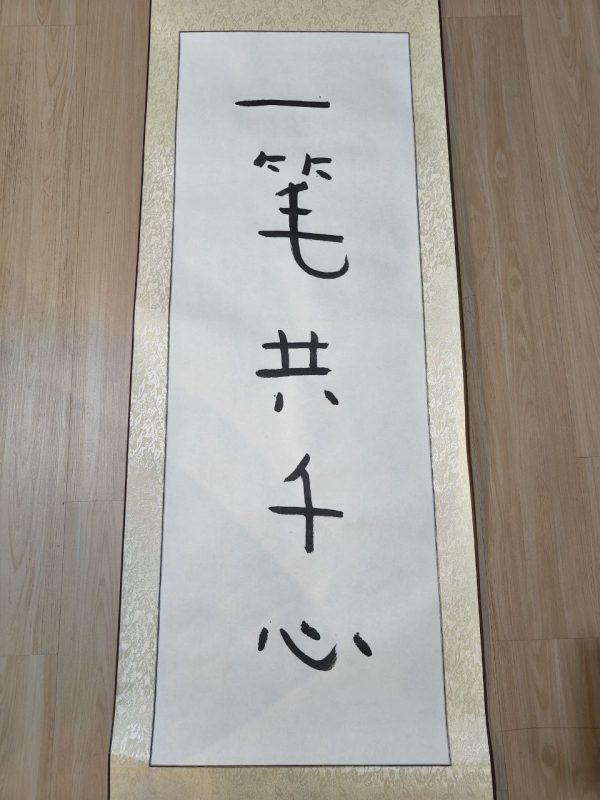 一笔共千心